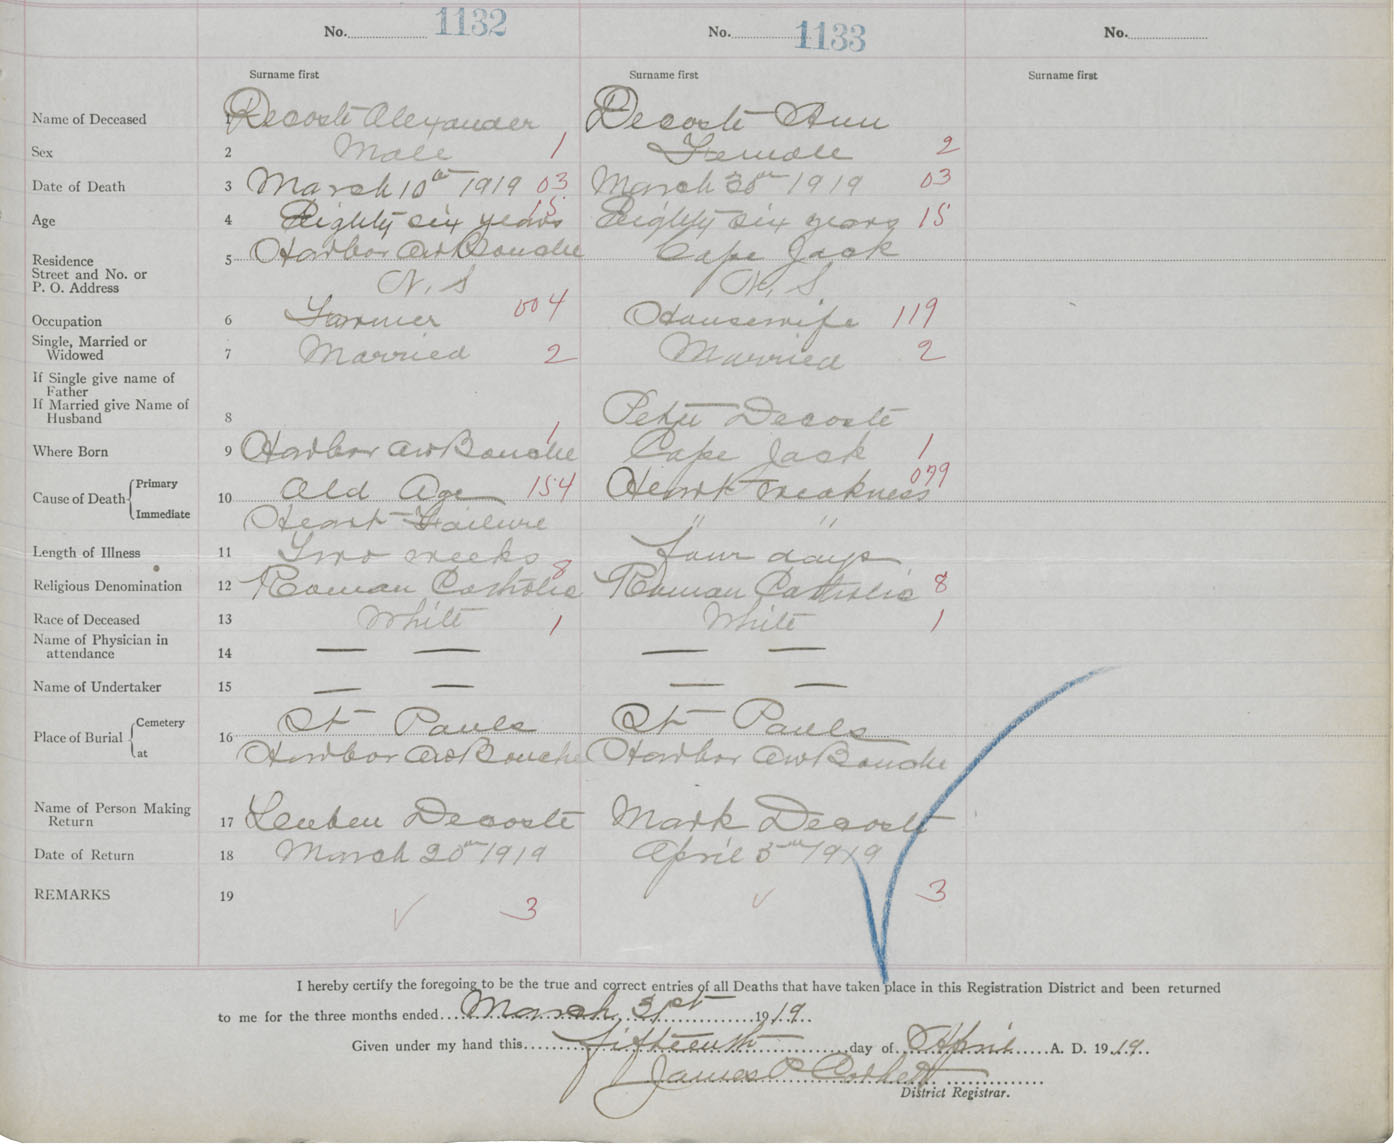 No. 1132 No. 1133 No.
Surname first Surname first Surname first
Name of Deceased 1 Decoste Alexander Decoste Ann
Sex 2 Male 1 Female 2
Date of Death 3 March 10th 1919 03 March 30th 1919 03
Age 4 Eighty six years 15 Eighty six years 15
Residence 5 Harbor Au Bouche Cape Jack
Street and No. or
P. O. Address N. S N. S
Occupation 6 Farmer 004 Housewife 119
Single, Married or
Widowed 7 Married 2 Married 2
If Single give name of
Father
If Married give Name of
Husband 8 Peter Decoste
Where Born 9 Harbor Au Bouche 1 Cape Jack 1
Cause of Death { Primary 10 Old Age 154 Heart weakness 079
Immediate Heart Failure " "
Length of Illness 11 Two weeks four days
Religious Denomination 12 Roman Catholic 8 Roman Catholic 8
Race of Deceased 13 White 1 White 1
Name of Physician in
attendance 14 — — — —
Name of Undertaker 15 — — — —
Place of Burial { Cemetery 16 St Pauls St Pauls
at Harbor Au Bouche Harbor Au Bouche
Name of Person Making
Return 17 Leuben Decoste Mark Decoste
Date of Return 18 March 20th 1919 April 5th 1919
REMARKS 19 ✓ 3 ✓ 3
I hereby certify the foregoing to be the true and correct entries of all Deaths that have taken place in this Registration District and been returned
to me for the three months ended March 31st 1919.
Given under my hand this fifteenth day of April A. D. 1919.
James P Corbett
District Registrar.